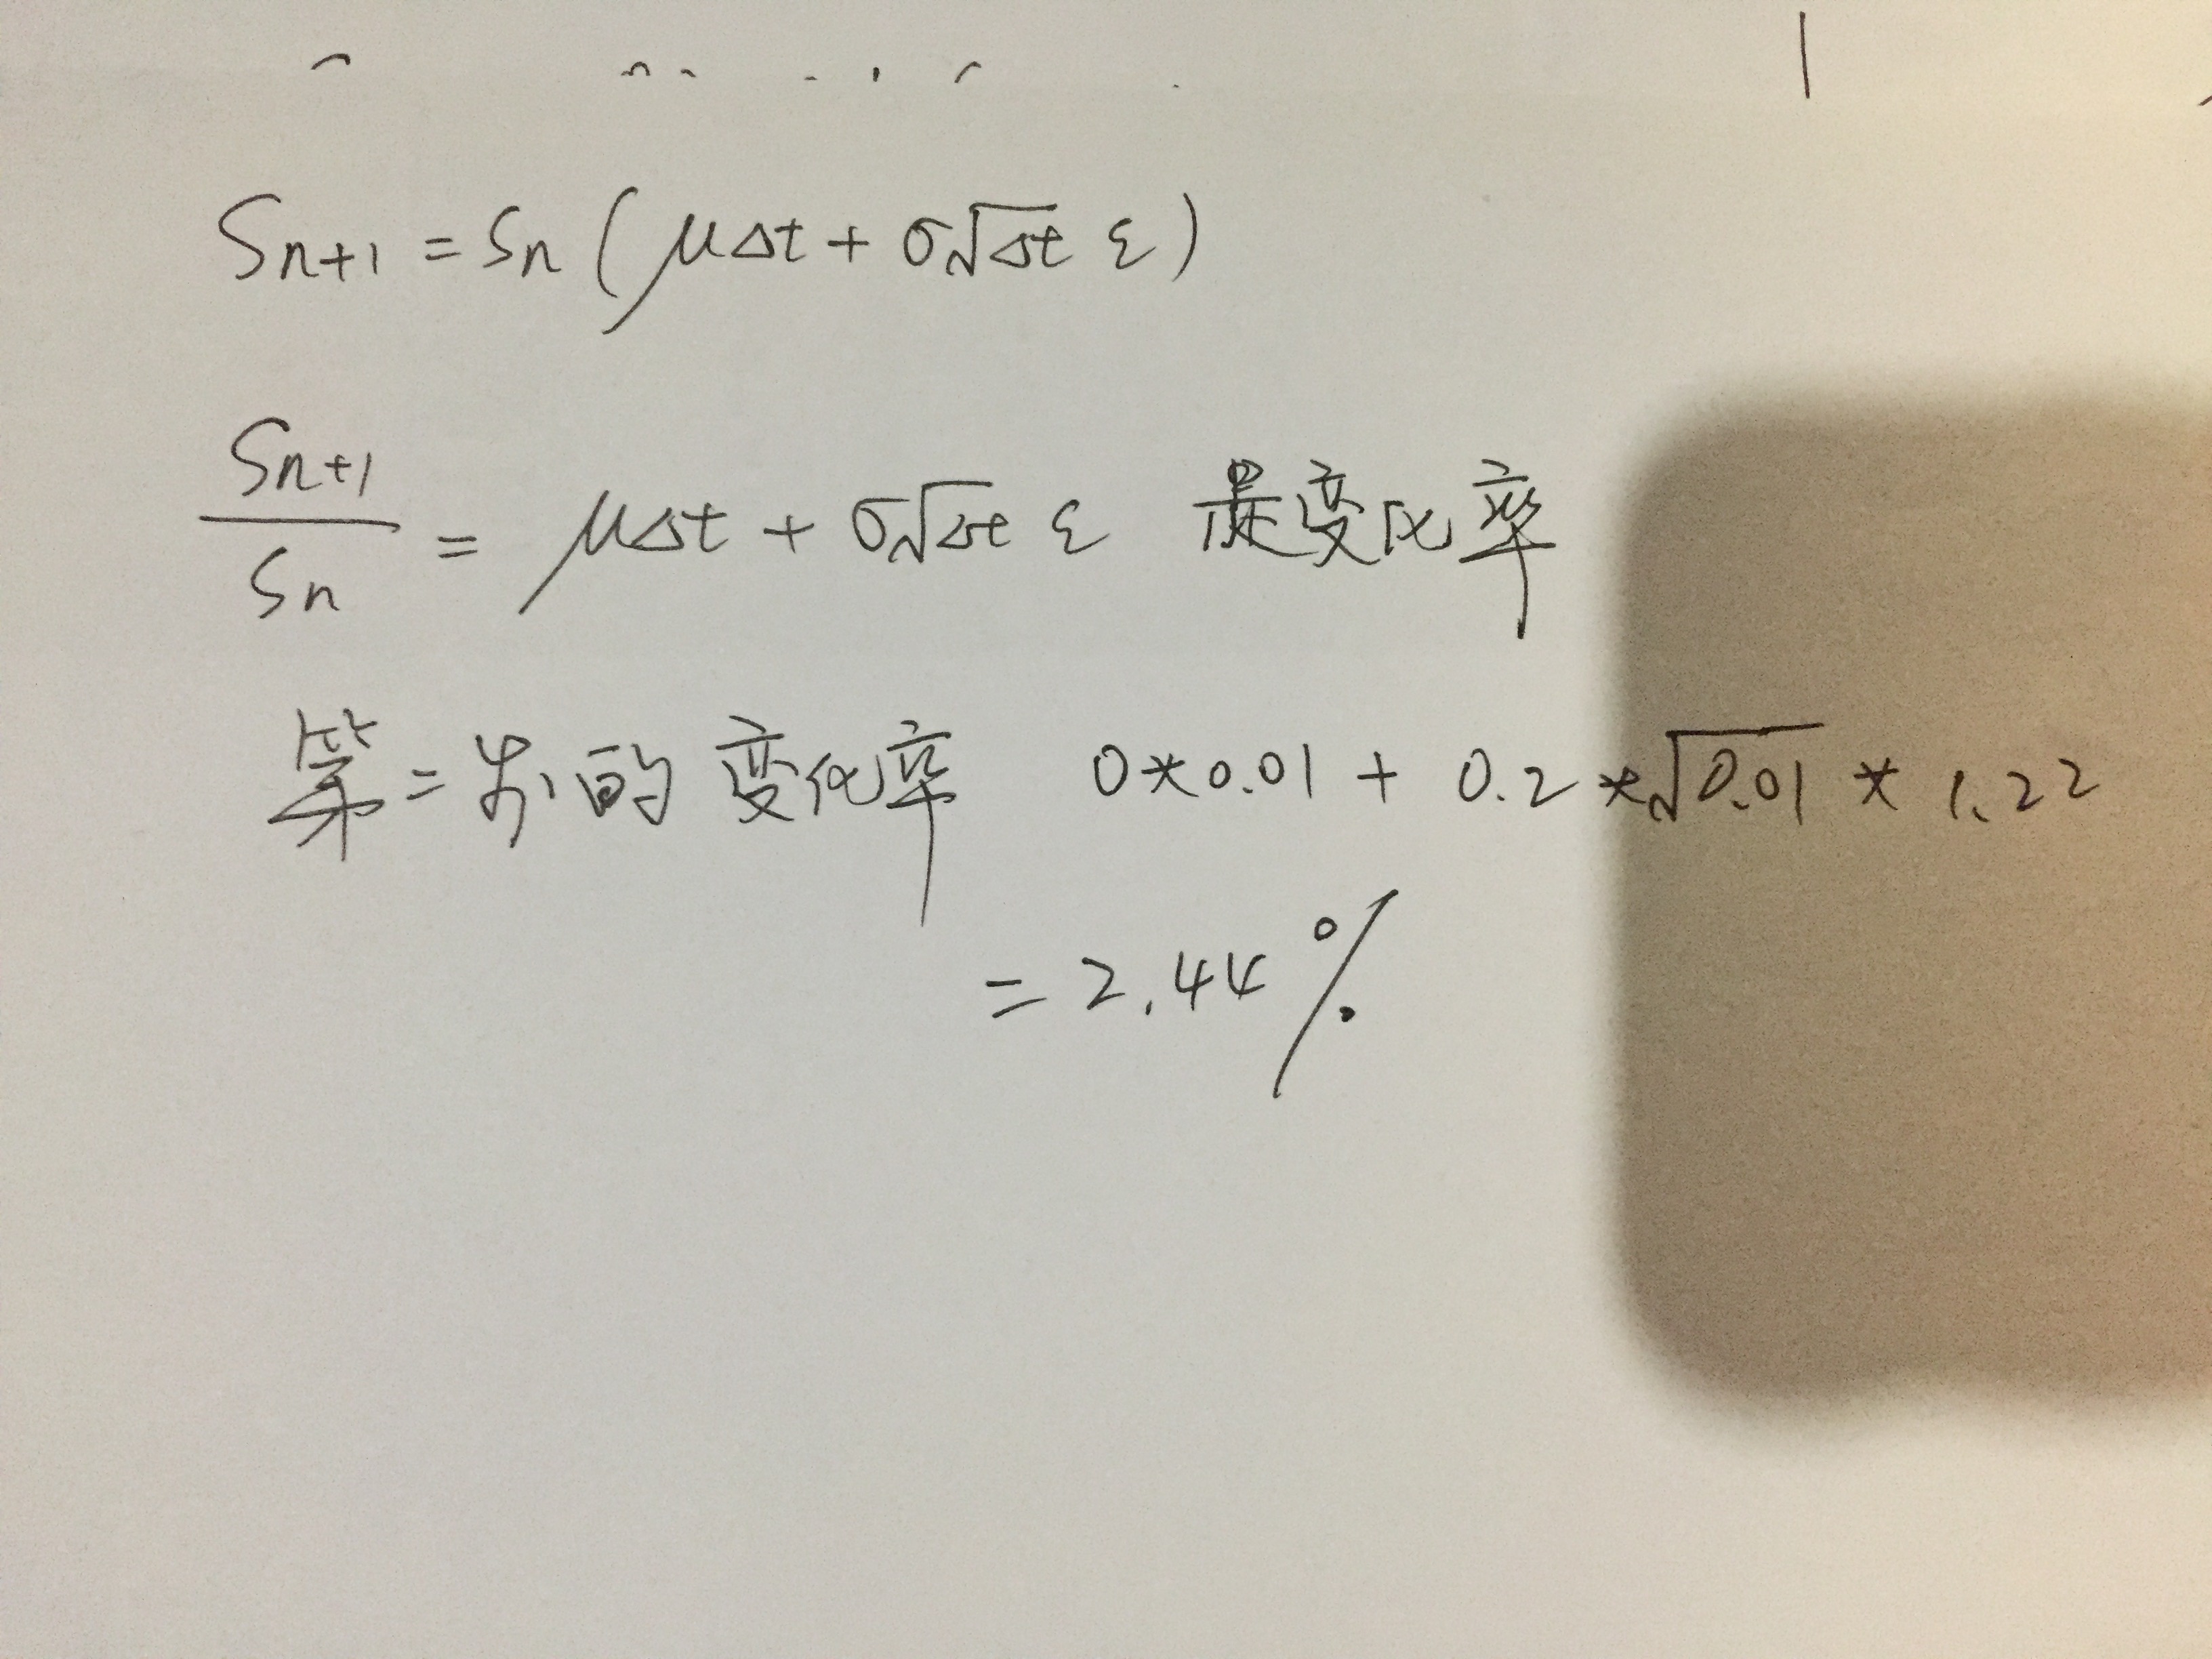 Sn+1 = Sn (μΔt + σ√Δt ε)
Sn+1/Sn = μΔt + σ√Δt ε 是变化率
第二步的变化率 0*0.01 + 0.2*√0.01 * 1.22
= 2.44%